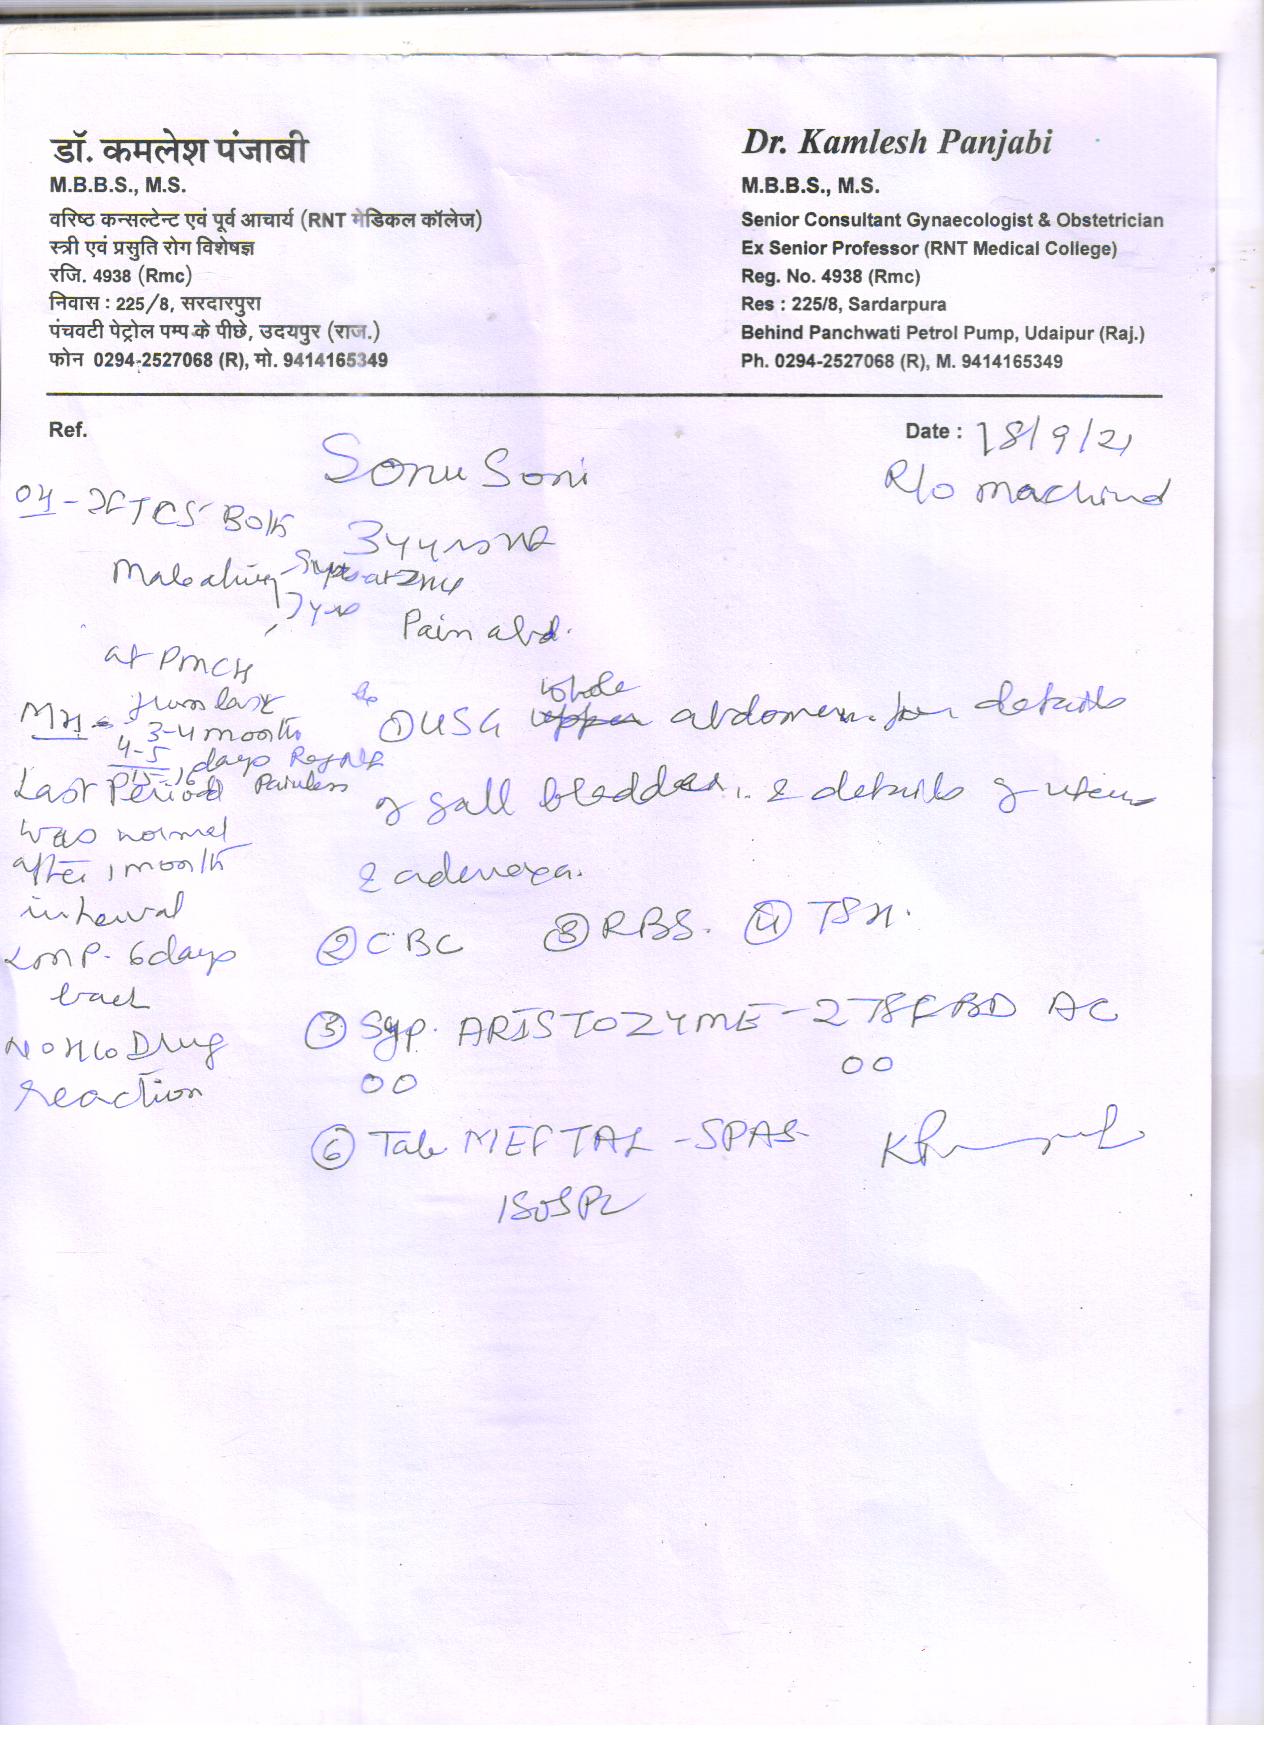 डॉ. कमलेश पंजाबी
M.B.B.S., M.S.
वरिष्ठ कन्सल्टेन्ट एवं पूर्व आचार्य (RNT मेडिकल कॉलेज)
स्त्री एवं प्रसुति रोग विशेषज्ञ
रजि. 4938 (Rmc)
निवास : 225/8, सरदारपुरा
पंचवटी पेट्रोल पम्प के पीछे, उदयपुर (राज.)
फोन 0294-2527068 (R), मो. 9414165349
Dr. Kamlesh Panjabi
M.B.B.S., M.S.
Senior Consultant Gynaecologist & Obstetrician
Ex Senior Professor (RNT Medical College)
Reg. No. 4938 (Rmc)
Res : 225/8, Sardarpura
Behind Panchwati Petrol Pump, Udaipur (Raj.)
Ph. 0294-2527068 (R), M. 9414165349
Ref.
Date : 18/9/21
Sonu Soni
R/o
OH - LSCS Both
34 yrs
Male alive
7 yrs
Pain abd.
at PMCH
MH - from last
3-4 month
4-5
15-16 days Regular
Painless
Last Period
was normal
after 1 month
interval
LMP - 6 days
back
No H/o Drug
reaction
① USG whole abdomen. for details
of gall bladder. & details of uterus
& adenexa.
② CBC ③ RBS. ④ TSH.
⑤ Syp. ARISTOZYME - 2 TSF BD AC
⑥ Tab MEFTAL - SPAS
1 SOS